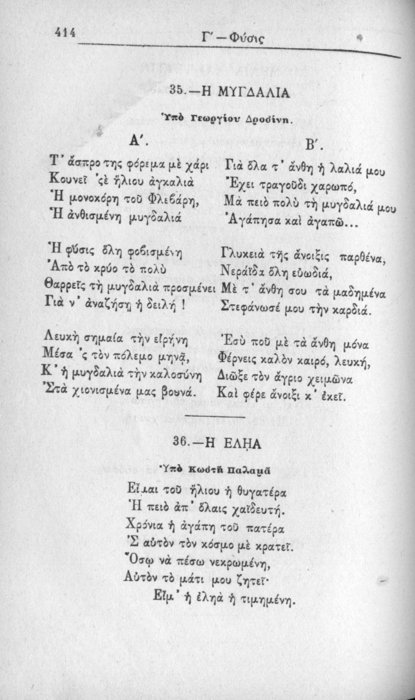 414
Γ΄ — Φύσις
35. — Η ΜΥΓΔΑΛΙΑ
Ὑπὸ Γεωργίου Δροσίνη.
Α΄.
Τ' ἄσπρο της φόρεμα μὲ χάρι
Κουνεῖ 'ςὲ ἥλιου ἀγκαλιὰ
Ἡ μονοκόρη τοῦ Φλεβάρη,
Ἡ ἀνθισμένη μυγδαλιά
Ἡ φύσις ὅλη φοβισμένη
Ἀπὸ τὸ κρύο τὸ πολὺ
Θαρρεῖς τὴ μυγδαλιὰ προσμένει
Γιὰ ν' ἀναζήσῃ ἡ δειλή !
Λευκὴ σημαία τὴν εἰρήνη
Μέσα 'ς τὸν πόλεμο μηνᾷ,
Κ' ἡ μυγδαλιὰ τὴν καλοσύνη
Στὰ χιονισμένα μας βουνά.
Β΄.
Γιὰ ὅλα τ' ἄνθη ἡ λαλιά μου
Ἔχει τραγοῦδι χαρωπό,
Μὰ πειὸ πολὺ τὴ μυγδαλιά μου
Ἀγάπησα καὶ ἀγαπῶ...
Γλυκειὰ τῆς ἄνοιξις παρθένα,
Νεράϊδα ὅλη εὐωδιά,
Μὲ τ' ἄνθη σου τὰ μαδημένα
Στεφάνωσέ μου τὴν καρδιά.
Ἐσὺ ποῦ μὲ τὰ ἄνθη μόνα
Φέρνεις καλὸν καιρό, λευκή,
Διῶξε τὸν ἄγριο χειμῶνα
Καὶ φέρε ἄνοιξι κ' ἐκεῖ.
36. — Η ΕΛῌΑ
Ὑπὸ Κωστῆ Παλαμᾶ
Εἶμαι τοῦ ἥλιου ἡ θυγατέρα
Ἡ πειὸ ἀπ' ὅλαις χαϊδευτή.
Χρόνια ἡ ἀγάπη τοῦ πατέρα
Σ αὐτὸν τὸν κόσμο μὲ κρατεῖ.
Ὅσῳ νὰ πέσω νεκρωμένη,
Αὐτὸν τὸ μάτι μου ζητεῖ·
Εἶμ' ἡ ἐλῃὰ ἡ τιμημένη.